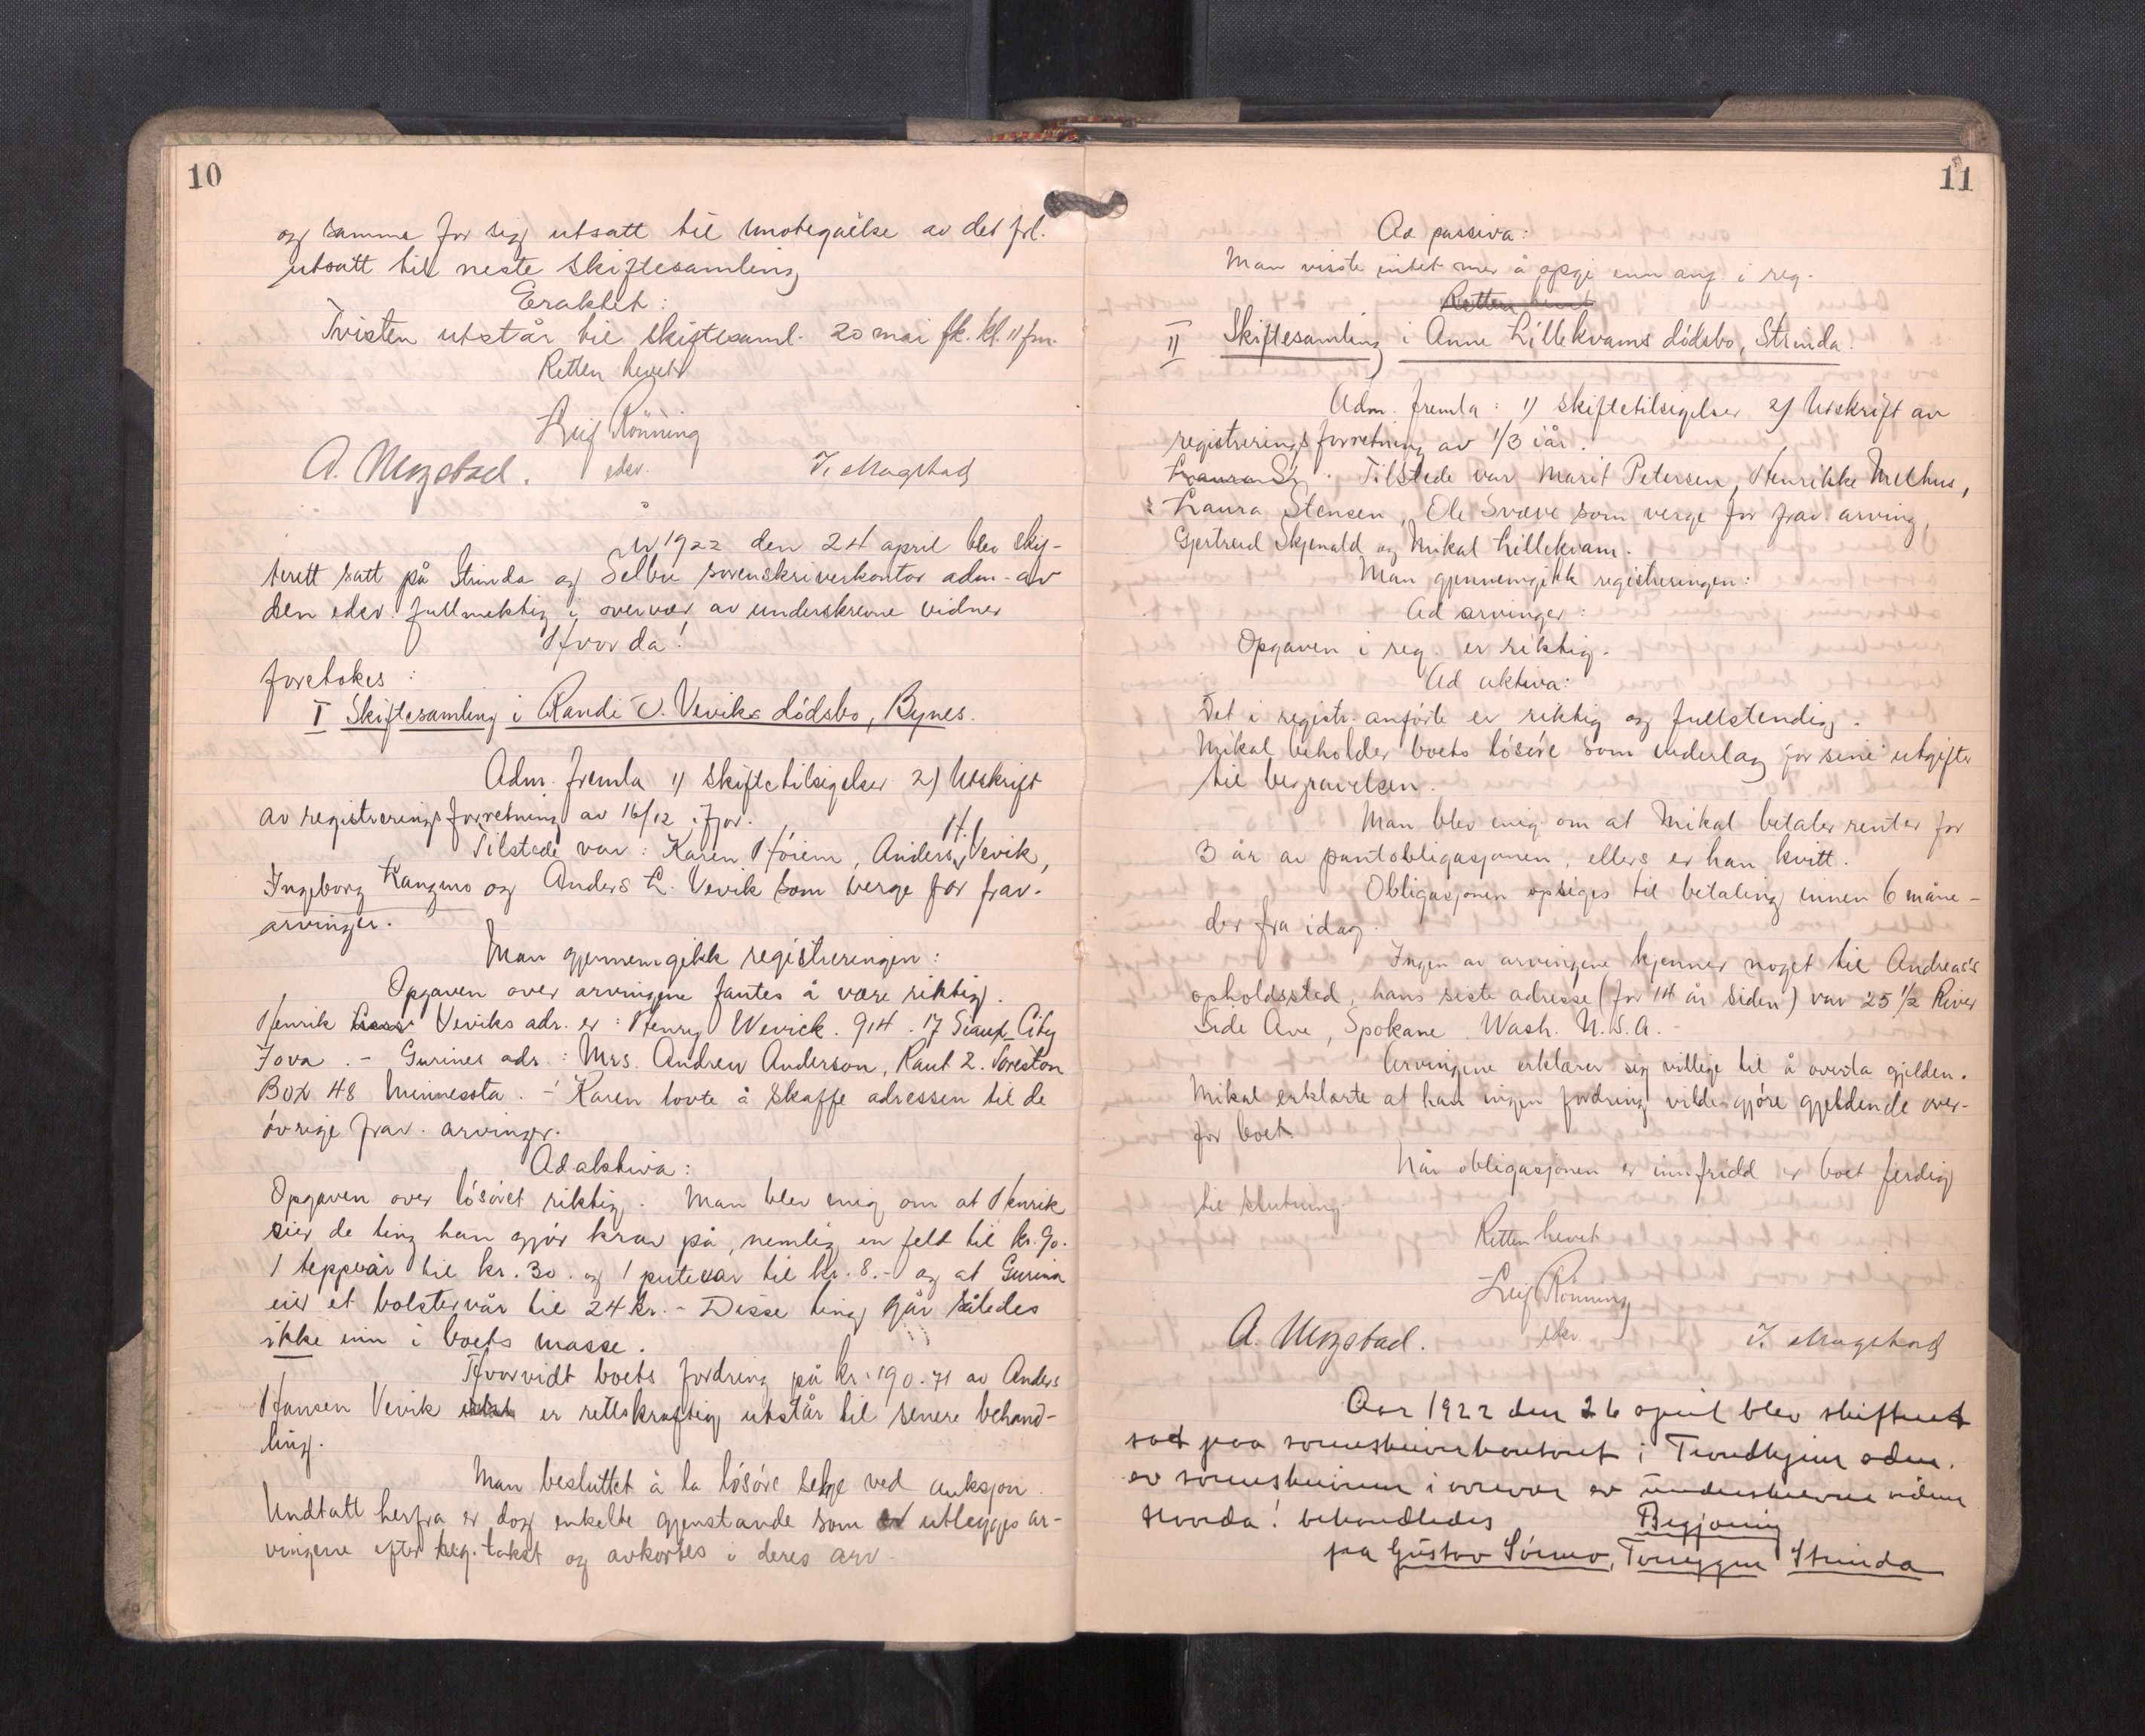 10
og samme for sig utsatt til imøtegåelse av det frl.
utsatt til neste skiftesamling
Eraktet:
Tvisten utstår til skiftesaml. 20 mai fk. kl. 11 fm.
Retten hevet
Leif Rönning
A. Mogstad. edsv. J. Mogstad
År 1922 den 24 april blev skif-
terett satt på Strinda og Selbu sorenskriverkontor adm. av
den edsv. fullmektig i overvær av underskrevne vidner
Hvorda!
foretokes:
I Skiftesamling i Randi O. Veviks dödsbo, Bynes.
Adm. fremla 1) skiftetilsigelser 2) Utskrift
av registreringsforretning av 16/12 ifjor.
Tilstede var: Karen Höiem, Anders H. Vevik,
Ingeborg Kangmo og Anders L. Vevik som verge for frav.
arvinger.
Man gjennemgikk registreringen:
Opgaven over arvingene fantes å være riktig.
Henrik Veviks adr. er: Henry Wevick. 914. 17 Sioux City
Iova. - Gurines adr.: Mrs. Andrew Anderson, Raut 2. Foreston
Box 48 Minnessta. - Karen lovte å skaffe adressen til de
övrige frav. arvinger.
Ad aktiva:
Opgaven over lösöret riktig. Man blev enig om at Henrik
eier de ting han gjör krav på, nemlig en feld til kr. 90.
1 teppvär til kr. 30. og 1 putevar til kr. 8.- og at Gurina
eier et bolstervår til 24 kr. - Disse ting går således
ikke inn i boets masse.
Hvorvidt boets fordring på kr. 190.71 av Anders
Hansen Vevik er rettskraftig utstår til senere behand-
ling.
Man besluttet å la lösöre selge ved auksjon.
Undtatt herfra er dog enkelte gjenstande som utlegges ar-
vingene efter reg. takst og avkortes i deres arv.
11
Ad passiva:
Man visste intet mer å opgi enn anf. i reg.
Retten hevet
II Skiftesamling i Anne Lillekvams dödsbo, Strinda.
Adm. fremla: 1) skiftetilsigelser 2) Utskrift av
registreringsforretning av 1/3 iår.
Tilstede var Marit Petersen, Henrikke Melhus,
Laura Stensen, Ole Svæve som verge for frav. arving,
Gjertrud Skjenald og Mikal Lillekvam.
Man gjennemgikk registreringen:
Ad arvinger:
Opgaven i reg. er riktig.
Ad aktiva:
Det i registr. anförte er riktig og fullstendig.
Mikal beholder boets lösöre som vederlag for sine utgifter
til begravelsen.
Man blev enig om at Mikal betaler renter for
3 år av pantobligasjonen, ellers er han kvitt.
Obligasjonen opsiges til betaling innen 6 måne-
der fra idag.
Ingen av arvingene kjenner noget til Andreas's
opholdssted, hans siste adresse (for 14 år siden) var 25 1/2 River
Side Ave, Spokane Wash. U.S.A. -
Arvingene erklærer sig villige til å overta gjelden.
Mikal erklærte at han ingen fordring vilde gjöre gjeldende over-
for boet.
Når obligasjonen er innfridd er boet ferdig
til slutning.
Retten hevet
Leif Rönning
A. Mogstad. edsv. J. Mogstad
Aar 1922 den 26 april blev skifteret
sat paa sorenskriverkontoret i Trondhjem adm.
av sorenskriveren i overvær av underskrevne vidner
Hvorda! behandledes Begjæring
fra Gustav Sörmo, Strinda